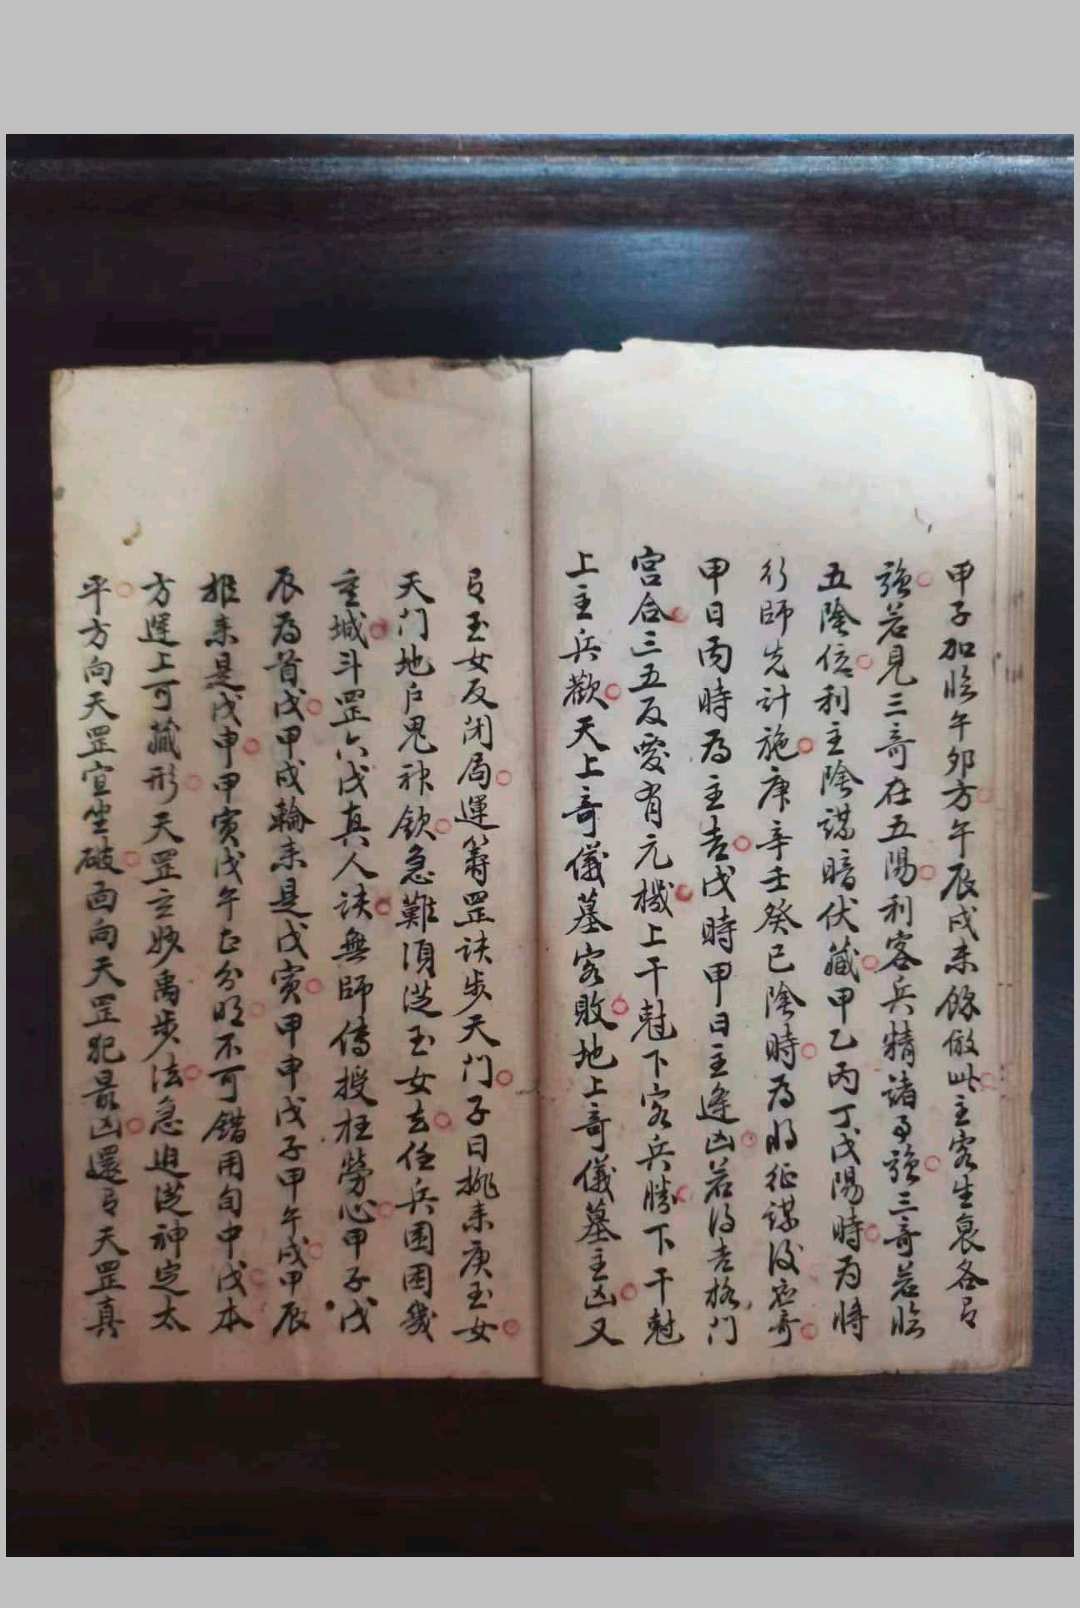 甲子加臨午卯方午辰戌未餘倣此主客生衰各有
強若見三奇在五陽利客兵精諸事強三奇若臨
五陰位利主陰謀暗伏藏甲乙丙丁戊陽時為將
行師先計施庚辛壬癸已陰時為將征謀後應奇
甲日丙時為主吉戊時甲日主逢凶若得吉格門
宮合三五反愛有元機上干尅下客兵勝下干尅
上主兵歡天上奇儀墓客敗地上奇儀墓主凶又
有玉女反闭局運籌罡訣步天門子日挑来庚玉女
天門地户鬼神欽急難須従玉女去任兵围困幾
重城斗罡六戊真人訣無師傳授枉勞心甲子戊
辰為首戊甲戌輪来是戊寅甲申戊子甲午戊甲辰
推来是戊申甲寅戊午正分明不可錯用旬中戊本
方遅上可藏形天罡立妙禹步法急迫従神定太
平方向天罡宣坐破面向天罡犯最凶還有天罡真